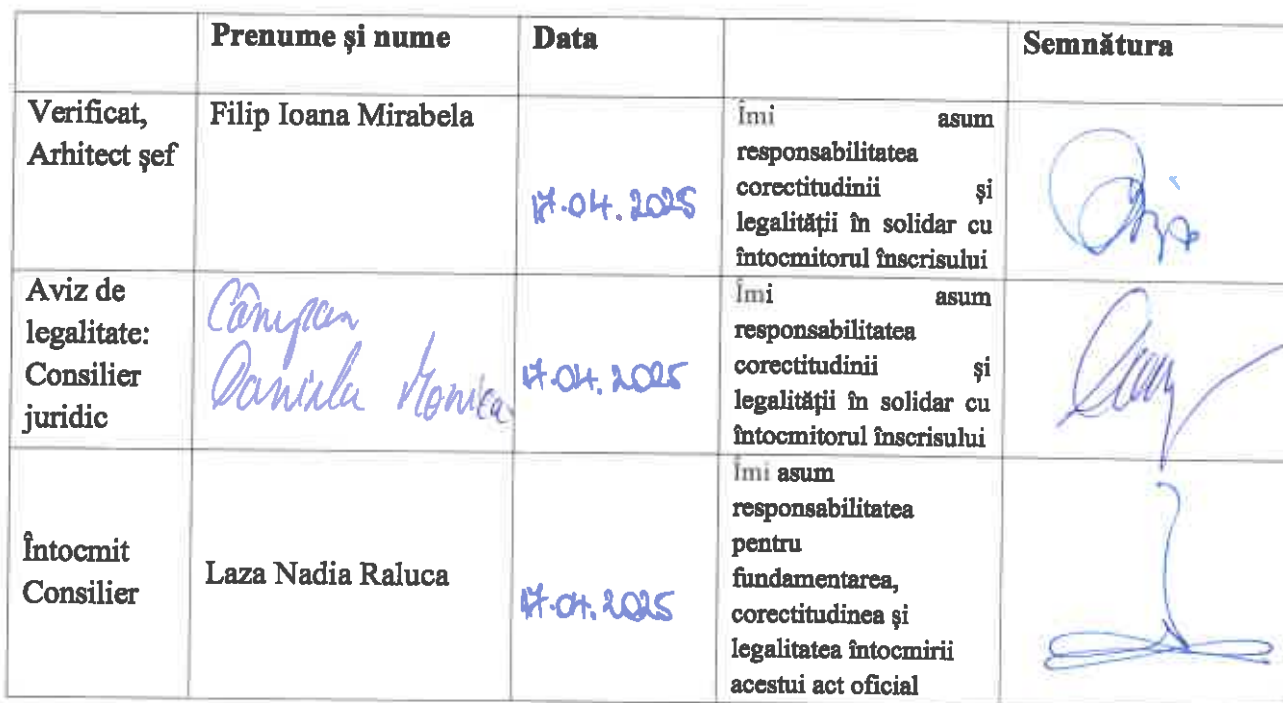 Prenume și nume Data Semnătura
Verificat,
Arhitect șef
Filip Ioana Mirabela
17.04.2025
Îmi asum
responsabilitatea
corectitudinii și
legalității în solidar cu
întocmitorul înscrisului
Aviz de
legalitate:
Consilier
juridic
Câmpan
Daniela Monica
17.04.2025
Îmi asum
responsabilitatea
corectitudinii și
legalității în solidar cu
întocmitorul înscrisului
Întocmit
Consilier
Laza Nadia Raluca
17.04.2025
Îmi asum
responsabilitatea
pentru
fundamentarea,
corectitudinea și
legalitatea întocmirii
acestui act oficial